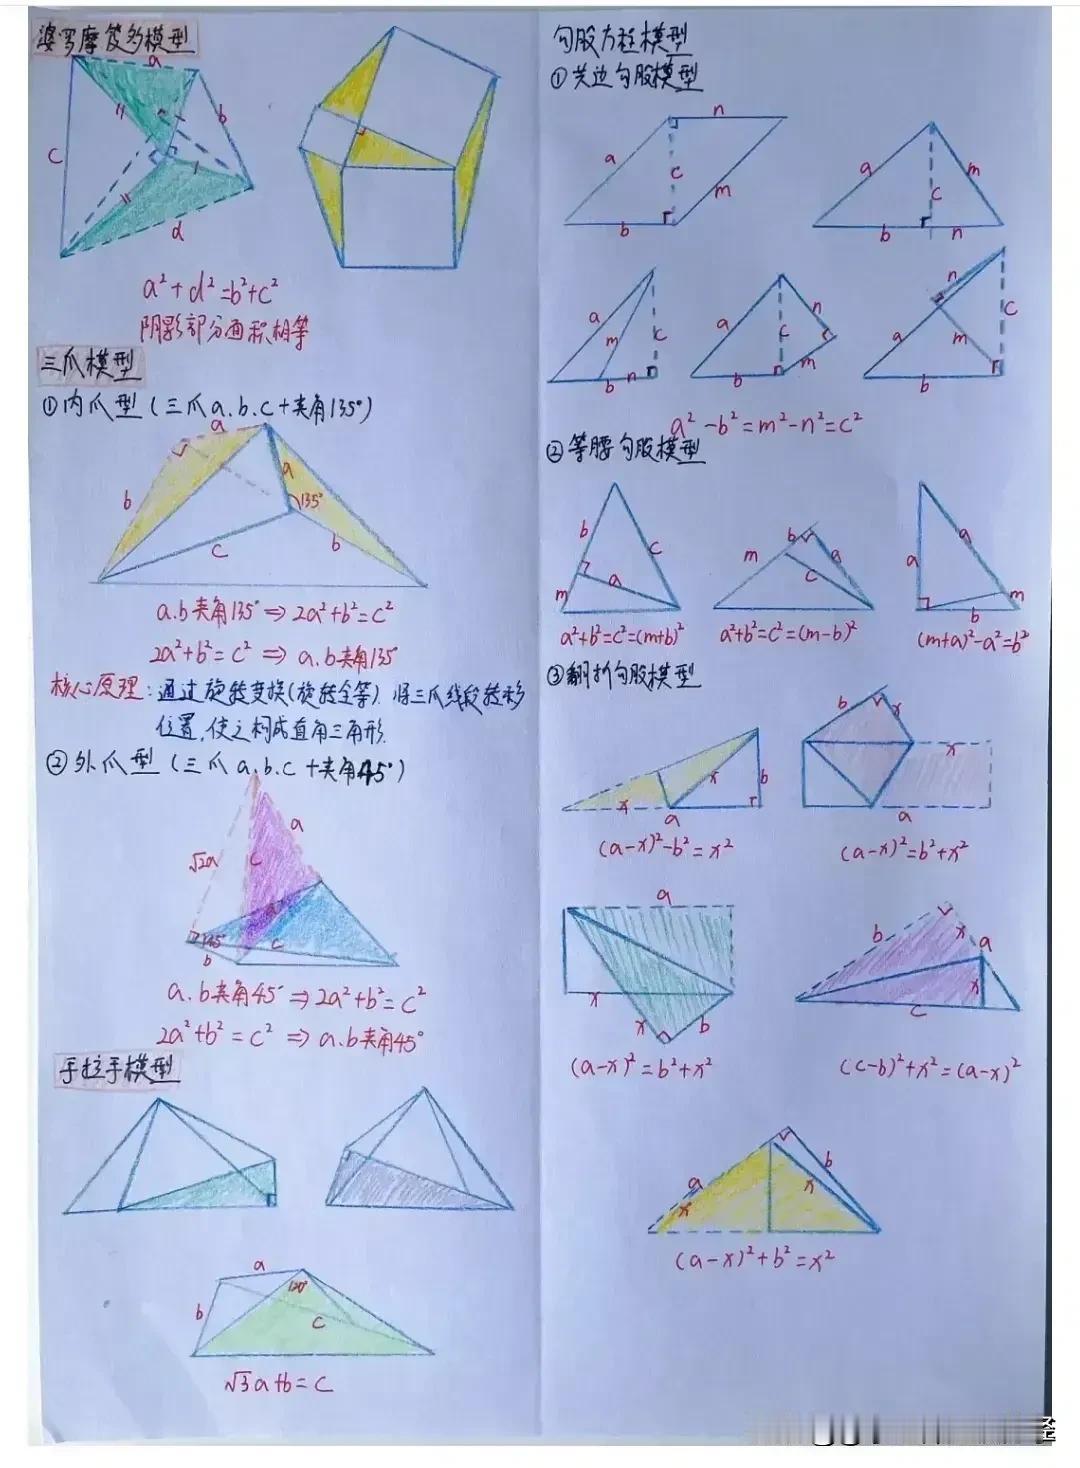 婆罗摩笈多模型
a
b
c
d
a²+d²=b²+c²
阴影部分面积相等
三爪模型
①内爪型(三爪a.b.c+夹角135°)
a
b
a
135°
c
b
a.b夹角135°⇒2a²+b²=c²
2a²+b²=c²⇒a.b夹角135
核心原理:通过旋转变换(旋转全等).将三爪线段转移
位置,使之构成直角三角形.
②外爪型(三爪a.b.c+夹角45°)
a
√2a
c
a
45°
c
b
a.b夹角45°⇒2a²+b²=c²
2a²+b²=c²⇒a.b夹角45°
手拉手模型
a
120°
b
c
√3a+b=c
勾股方程模型
①共边勾股模型
n
a
c
m
b
a
m
c
b
n
a
m
c
b
n
a
c
n
b
m
n
c
a
m
b
a²-b²=m²-n²=c²
②等腰勾股模型
b
c
a
m
a²+b²=c²=(m+b)²
b
m
a
c
a²+b²=c²=(m-b)²
a
a
m
b
(m+a)²-a²=b²
③翻折勾股模型
x
b
x
a
(a-x)²-b²=x²
b
x
x
a
(a-x)²=b²+x²
a
x
x
b
(a-x)²=b²+x²
b
x
a
x
c
(c-b)²+x²=(a-x)²
b
a
x
x
(a-x)²+b²=x²